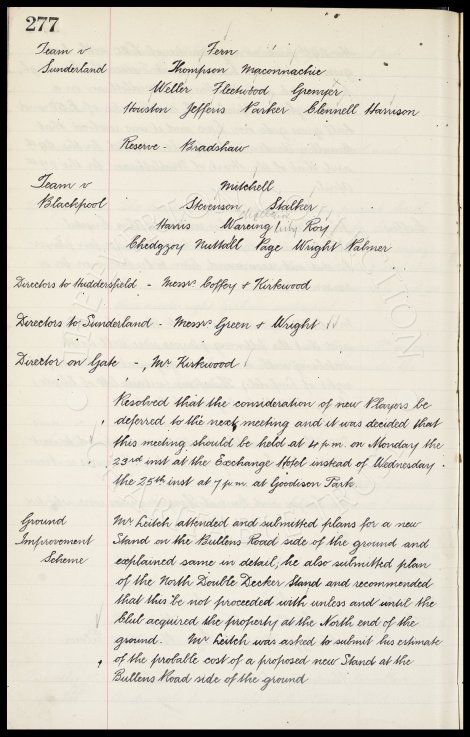 277
Team v Fern
Sunderland Thompson Maconnachie
Weller Fleetwood Grenyer
Houston Jefferis Parker Clennell Harrison
Reserve - Bradshaw
Team v Mitchell
Blackpool Stevenson Stalker
Harris Wareing Roy
Chedgzoy Nuttall Page Wright Palmer
Directors to Huddersfield - Messrs Coffey & Kirkwood
Directors to Sunderland - Messrs Green & Wright
Director on Gate - Mr Kirkwood
Resolved that the consideration of new Players be
deferred to the next meeting and it was decided that
this meeting should be held at 4 p.m. on Monday the
23rd inst at the Exchange Hotel instead of Wednesday
the 25th inst at 7 p.m. at Goodison Park.
Ground Mr Leitch attended and submitted plans for a new
Improvement Stand on the Bullens Road side of the ground and
Scheme explained same in detail; he also submitted plan
of the North Double Decker Stand and recommended
that this be not proceeded with unless and until the
Club acquired the property at the North end of the
ground. Mr Leitch was asked to submit his estimate
of the probable cost of a proposed new Stand at the
Bullens Road side of the ground